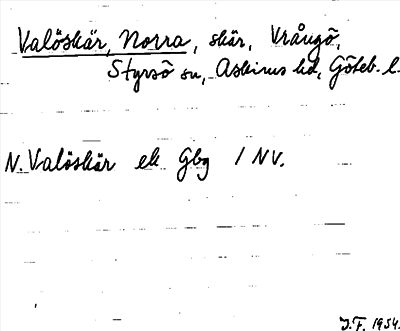 Valöskär, Norra, skär, Vrångö,
Styrsö sn, Askims hd, Göteb. l.
N. Valöskär ek Gbg 1 NV.
J.F. 1954.